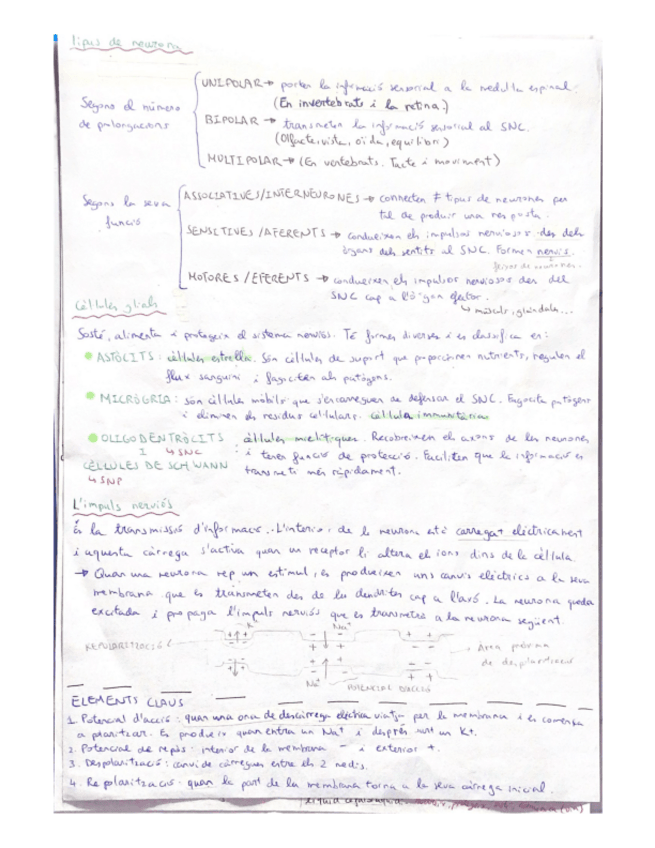 Tipus de neurona
Segons el número de prolongacions
UNIPOLAR → porten la informació sensorial a la medul·la espinal.
(En invertebrats i la retina.)
BIPOLAR → transmeten la informació sensorial al SNC.
(Olfacte, vista, oïda, equilibri)
MULTIPOLAR → (En vertebrats. Tacte i moviment)
Segons la seva funció
ASSOCIATIVES/INTERNEURONES → connecten ≠ tipus de neurones per
tal de produir una resposta.
SENSITIVES / AFERENTS → condueixen els impulsos nerviosos des dels
òrgans dels sentits al SNC. Formen nervis.
feixos de neurones.
MOTORES / EFERENTS → condueixen els impulsos nerviosos des del
SNC cap a l'òrgan efector.
↳ músculs, glàndules...
Cèl·lules glials
Sosté, alimenta i protegeix el sistema nerviós. Té formes diverses i es classifica en:
ASTÒCITS: cèl·lules estrella. Són cèl·lules de suport que proporcionen nutrients, regulen el
flux sanguini i fagociten als patògens.
MICRÒGRIA: són cèl·lules mòbils que s'encarreguen de defensar el SNC. Fagocita patògens
i eliminen els residus cel·lulars. cèl·lula immunitària
OLIGODENTRÒCITS : cèl·lules mielítiques. Recobreixen els axons de les neurones
I ↳ SNC i tenen funció de protecció. Faciliten que la informació es
CÈL·LULES DE SCHWANN transmeti més ràpidament.
↳ SNP
L'impuls nerviós
És la transmissió d'informació. L'interior de la neurona està carregat elèctricament
i aquesta càrrega s'activa quan un receptor li altera el ions dins de la cèl·lula.
→ Quan una neurona rep un estímul, es produeixen uns canvis elèctrics a la seva
membrana que es transmeten des de les dendrites cap a l'axó. La neurona queda
excitada i propaga l'impuls nerviós que es transmetrà a la neurona següent.
K+ Na+
REPOLARITZACIÓ
Àrea pròxima
de despolarització
Na+ POTENCIAL D'ACCIÓ
ELEMENTS CLAUS
1. Potencial d'acció: quan una ona de descàrrega elèctrica viatja per la membrana i es comença
a polaritzar. Es produeix quan entra un Na+ i després surt un K+.
2. Potencial de repòs: interior de la membrana - i exterior +.
3. Despolarització: canvi de càrregues entre els 2 medis.
4. Repolarització: quan la part de la membrana torna a la seva càrrega inicial.